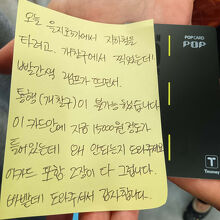 오늘 을지로3가에서 지하철을
타려고. 개찰구에서 찍었는데
빨간색 램프가 뜨면서.
통행(개찰구)이 불가능했습니다.
이 카드안에 지금 15000원정도가
들어있는데 왜 안되는지 도와주세요
이카드 포함 2장이 다 그럽니다.
바쁠텐데 도와주셔서 감사합니다.
POPCARD
POP
T
Tmoney